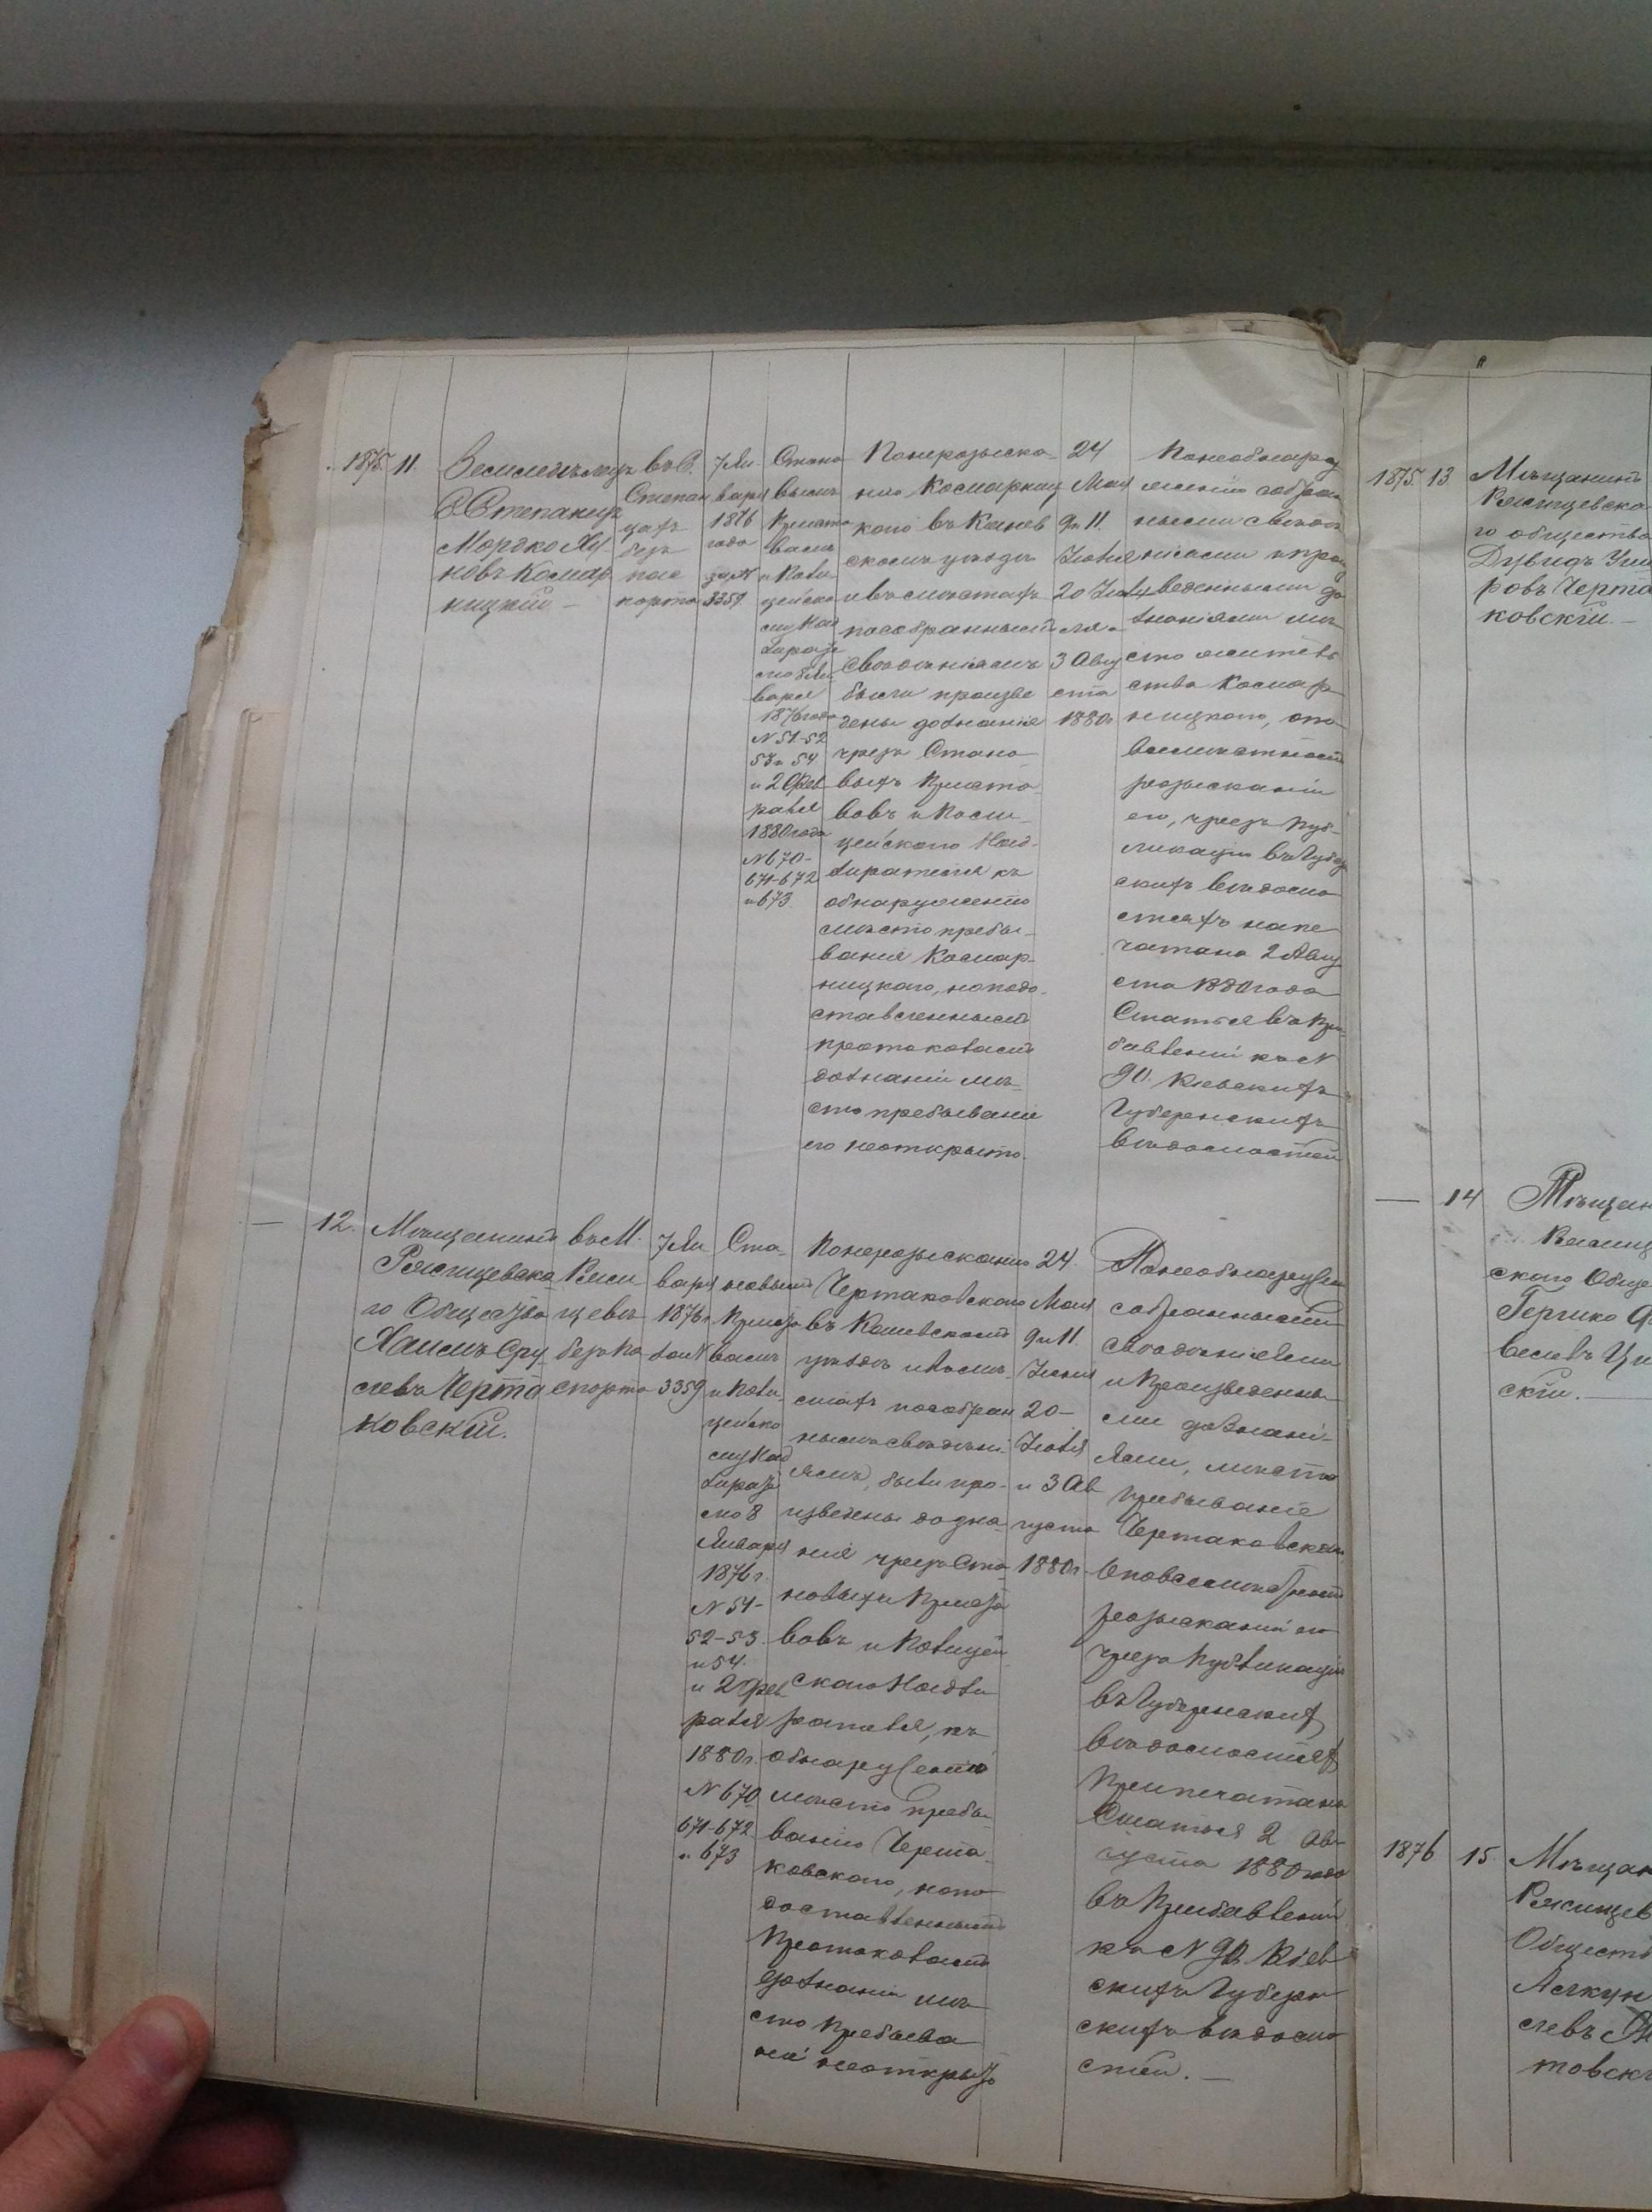 1875. 11.
Землемѣлецъ
С. Степанецъ
Мордко
новъ Комар
ницкій —
въ С.
Степан
цахъ
безъ
пас
порта
7 Ян
варя
1876
года
за №
3359
Стано
вымъ
Приста
вамъ
и Поли
цейско
му Над
зирате
лю 8 Ян
варя
1876 года
№ 51-52
53 и 54
и 20 фев
раля
1880 года
№ 670-
671-672
и 673.
По неразыска
нію Комарниц
каго въ Канев
скомъ уѣздѣ
и въ мѣстахъ
по собраннымъ
свѣдѣніямъ
были произве
дены дознанія
чрезъ Стано
выхъ Приста
вовъ и Поли
цейскаго Над-
зирателя къ
обнаруженію
мѣсто пребы-
ванія Комар-
ницкаго, но по до-
ставленнымъ
протоколамъ
дознаній мѣ-
сто пребываніе
его не открыто.
24
Мая
9 и 11.
Іюня
20 Ію
ля и
3 Авгу
ста
1880 г.
По необнару
женію собран
ными свѣдѣ
ніями и прои
зведенными до
знаніями мѣ
сто житель
ства Комар
ницкаго, о по
всемѣстномъ
розысканіи
его, чрезъ пуб-
ликацію въ Губерн
скихъ вѣдомо
стяхъ напе
чатана 2 Авгу
ста 1880 года
Статья въ При
бавленіи къ №
90. Кіевскихъ
Губернскихъ
вѣдомостей
— 12.
Мѣщанинъ
Ржищевска
го Общества
Хаимъ Сру
левъ Черта
ковскій.
въ М.
Ржи
щевѣ
безъ па
спорта
7 Ян
варя
1876 г.
за №
3359
Ста-
новымъ
Приста
вамъ
и Поли
цейско
му Над
зирате
лю 8
Января
1876 г.
№ 51-
52-53
и 54.
и 20 фев
раля
1880 г.
№ 670
671-672
и 673
По неразысканію
Чертаковскаго
въ Каневскомъ
уѣздѣ и въ мѣ-
стахъ по собран
нымъ свѣдѣні-
ямъ, были про-
изведены дозна-
нія чрезъ Ста-
новыхъ Приста
вовъ и Полицей
скаго Надзи
рателя, къ
обнаруженію
мѣсто пребы-
ванію Черта-
ковскаго, но по
доставленнымъ
Протоколамъ
дознаній мѣ-
сто пребыва
ніе не открыто
24.
Мая
9 и 11.
Іюня
20-
Іюля
и 3 Ав
густа
1880 г.
По необнаружен
собранными
свѣдѣніями
и произведенны-
ми дознані-
ями, мѣсто
пребываніе
Чертаковскаго
О повсемѣстномъ
розысканіи его
чрезъ публикацію
въ Губернскихъ
вѣдомостяхъ
Припечатана
Статья 2 Ав-
густа 1880 года
въ Прибавленіи
къ № 90. Кіев
скихъ Губерн
скихъ вѣдомо
стей. —
1875. 13.
Мѣщанинъ
Ржищевска
го общества
Дувидъ
ровъ Черта
ковскій. —
— 14
Мѣщан
Ржищ
скаго Обще
Гершко
скій. —
1876 15.
Мѣщан
Ржищев
Обществ
левъ
товск